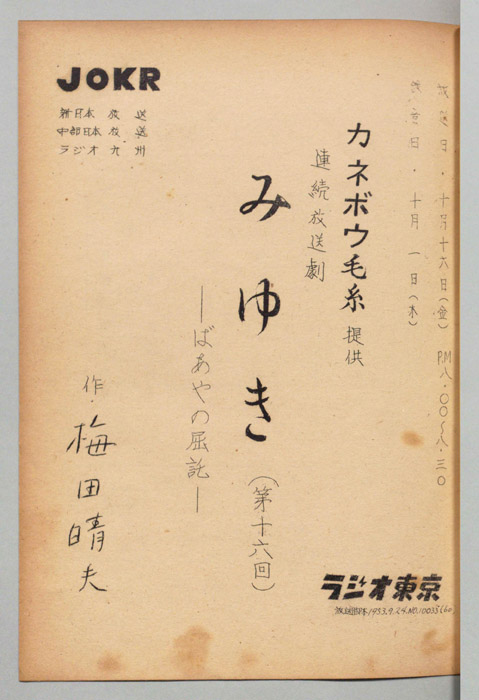 放送日・十月十六日(金) P.M八・00〜八・三0
録音日・十月一日(木)
カネボウ毛糸 提供
連続放送劇
みゆき(第十六回)
―ばあやの屈託―
作・梅田晴夫
JOKR
新日本放送
中部日本放送
ラジオ九州
ラジオ東京
1953.9.24.NO.